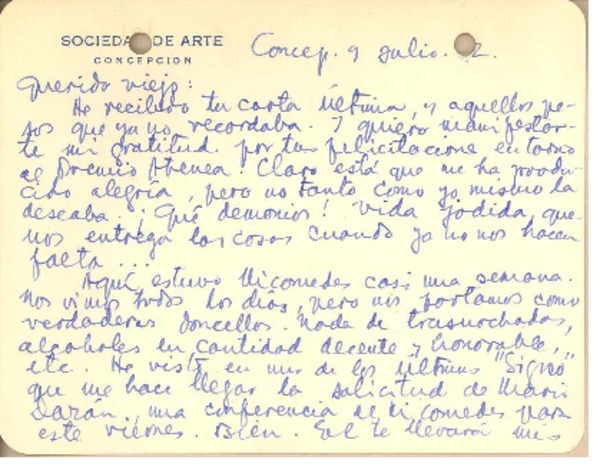 SOCIEDAD DE ARTE
CONCEPCION
Concep. 9 julio. 2.
Querido viejo:
He recibido tu carta última, y aquellos pe-
sos que ya no recordaba. Y quiero manifestar-
te mi gratitud por tus felicitacione en torno
al Premio Atenea. Claro está que me ha produ-
cido alegría, pero no tanto como yo mismo la
deseaba. ¡Qué demonios! Vida jodida, que
nos entrega las cosas cuando ya no nos hacen
falta...
Aquí estuvo Nicomedes casi una semana.
Nos vimos todos los días, pero nos portamos como
verdaderas doncellas. Nada de trasnochadas,
alcoholes en cantidad decente y honorable,
etc. He visto en uno de los últimos "Signo"
que me hace llegar la solicitud de Mario
una conferencia de Nicomedes para
este viernes. Bien. Él te llevará mis